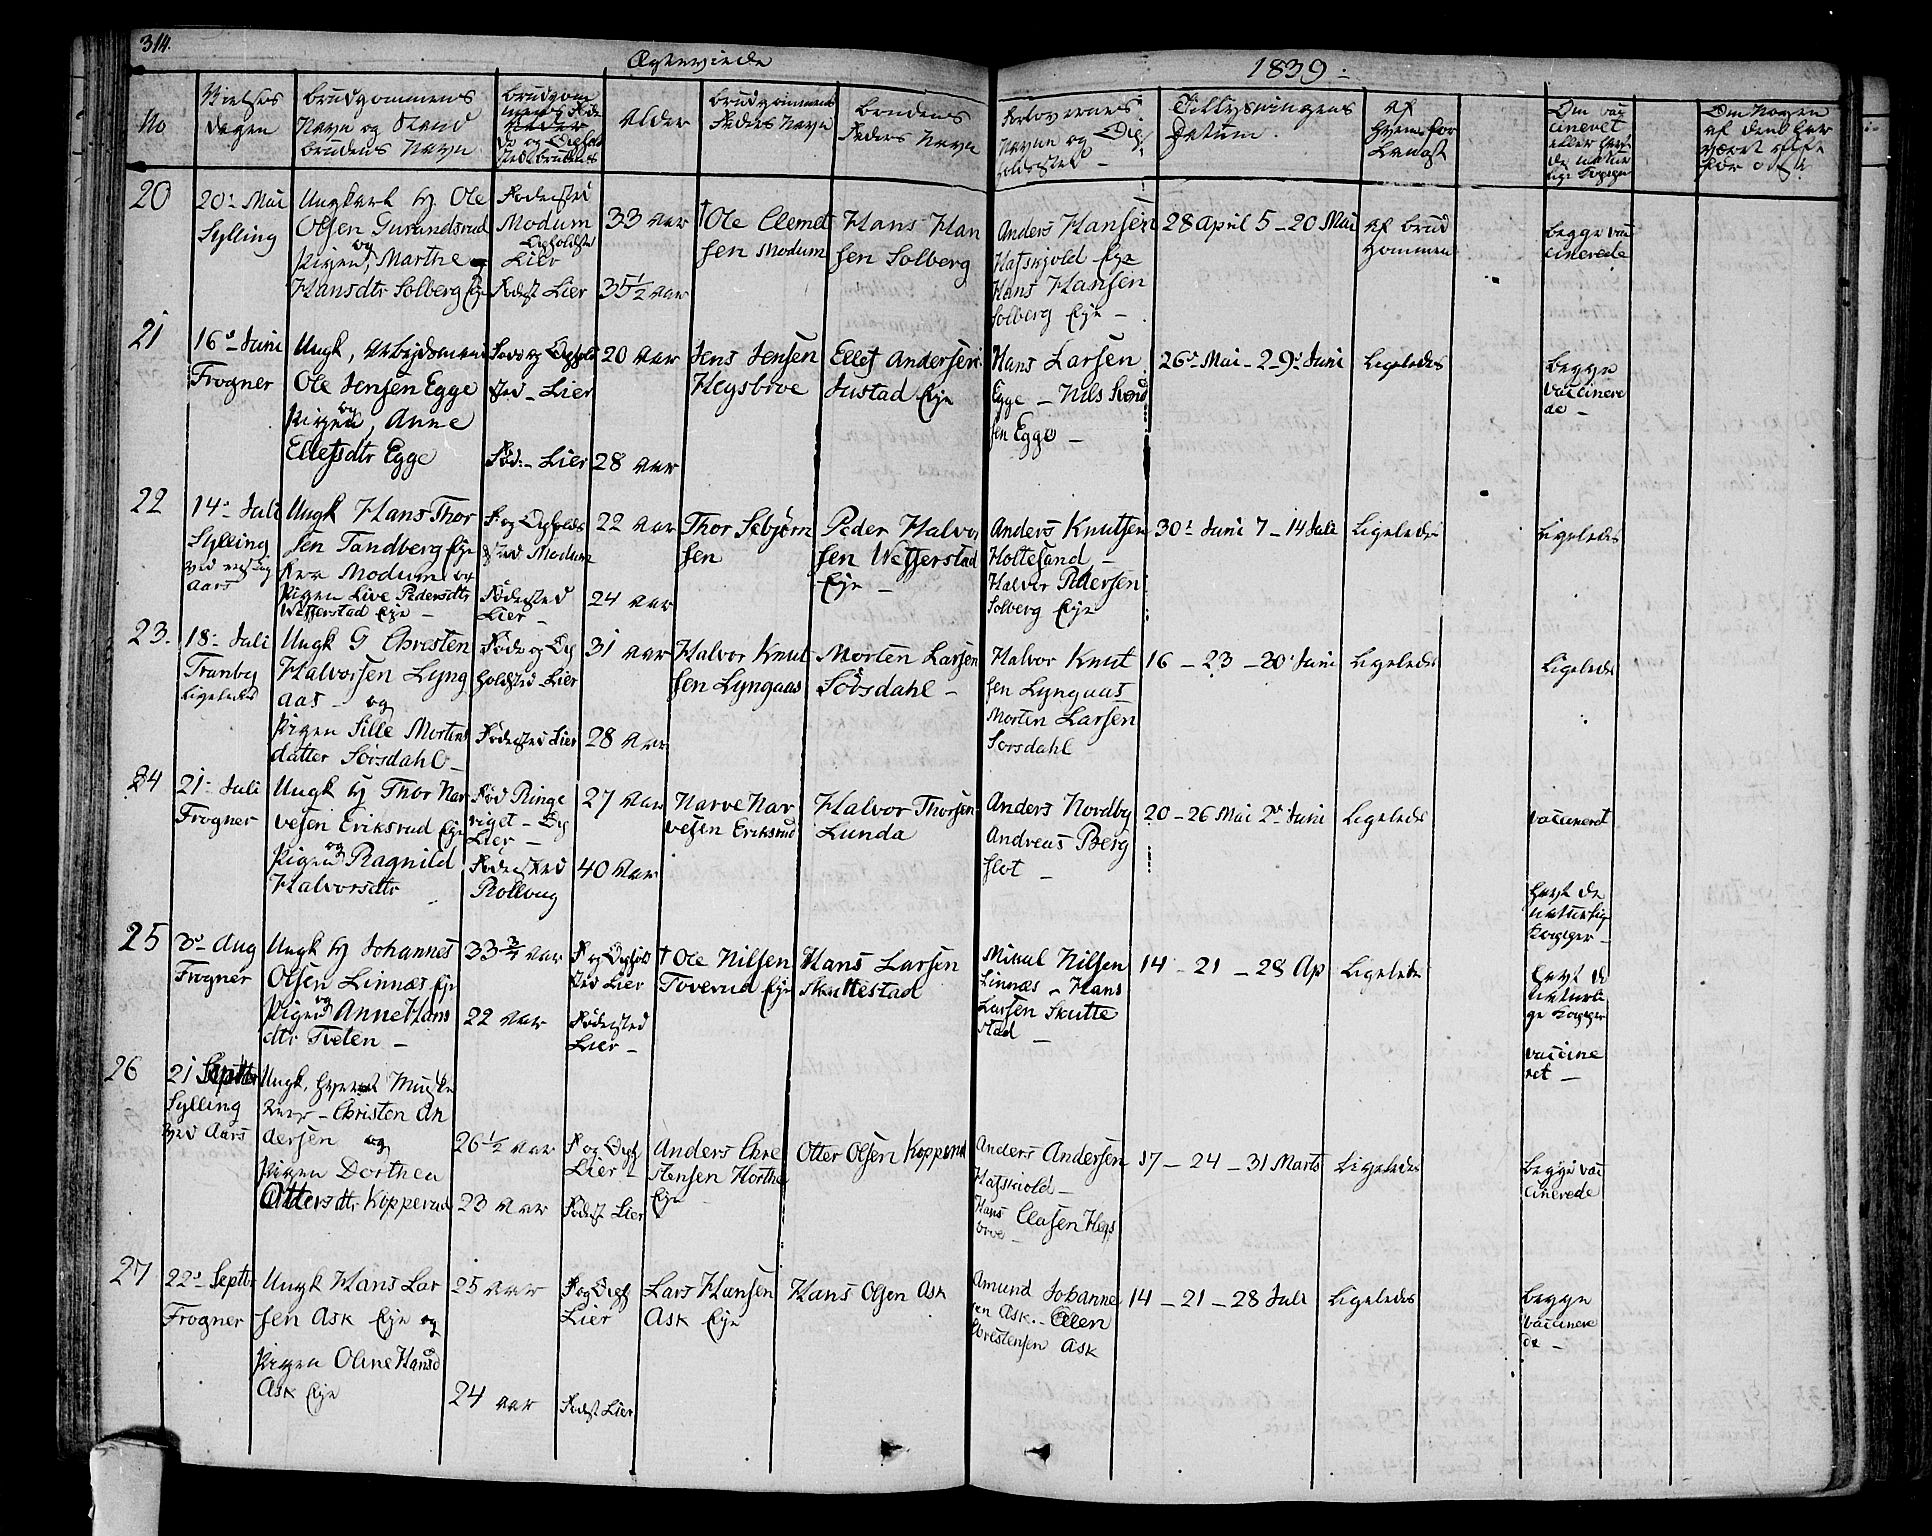 314.
Ægteviede
1839.
No
Vielses
dagen
Brudgommens
Navn og Stand
Brudens Navn
Alder
Brudgommens
Faders Navn
Brudens
Faders Navn
Forlovernes
Navne og Op
holdssted
Tillysningens
Datum.
Af
hvem for
Langt
Om vac
cineret
eller havt
de natur
lige Kopper
Om Nogen
af dem har
været gift
før
20
20de Mai
Sylling
Ungkarl Hj Ole
Olsen Gurandsrud
og
Pigen, Marthe
Hansdtr Solberg Eje
Fødested
Modum
Opholdsted
Lier
Fødest Lier
33 Aar
35 1/2 Aar
† Ole Clemet
sen Modum
Hans Han
sen Solberg
Anders Hansen
Hafskjold Eje
Hans Hansen
Solberg Eje –
28 April 5 – 20 Mai
Af Brud
gommen
Begge vac
cinerede
21
16de Juni
Frogner
Ungk, Arbejdsmand
Ole Jensen Egge
og
Pigen, Anne
Ellefsdtr Egge
Føde og Ophold
sted – Lier
Fød: – Lier
20 Aar
28 Aar
Jens Jensen
Hegsbroe
Ellef Andersen
Justad Eje
Hans Larsen
Egge – Nils Knud
sen Egge –
26de Mai – 2 – 9de Juni
Ligeledes
Begge
vaccinere
de –
22
14de Juli
Sylling
Aars
Ungk Hans Thor
sen Tandberg Eje
Modum og
Pigen Live Pedersdtr
Wefferstad Eje –
F og Opholds
sted Modum
Fødested
Lier –
22 Aar
24 Aar
Thor Sebjørn
sen
Peder Halvor
sen Wefferstad
Eje –
Anders Knutsen
Holtesand –
Halvor Pedersen
Solberg Eje
30te Juni 7 – 14 Juli
Ligeledes
Ligeledes
23.
18de Juli
Tranby
Ligeledes
Ungk G Christen
Halvorsen Lyng
aas – og
Pigen Sille Mortens
datter Sørsdahl –
Føde og Op
holdsted Lier
Fødested Lier
31 Aar
28 Aar
Halvor Knut
sen Lyngaas
Morten Larsen
Sørsdahl –
Halvor Knut
sen Lyngaas
Morten Larsen
Sørsdahl
16 – 23 – 20 Juni
Ligeledes
Ligeledes
24
21de Juli
Frogner
Ungk Hj Thor Nar
vesen Eriksrud Eje
og
Pigen Ragnild
Halvorsdtr
Fød Ringe
riget – Op
Lier –
Fødested
Rolloug
27 Aar
40 Aar
Narve Nar
vesen Eriksrud
Halvor Thorsen
Lunda
Anders Nordby
Andreas Berg
flot –
20 – 26 Mai 2de Juni
Ligeledes
vaccineret
havt de
naturlige
Kopper –
25
3de Aug
Frogner
Ungk Hj Johannes
Olsen Linnæs Eje
og
Pigen Anne Hans
dtr Tveten –
33 3/4 Aar
22 Aar
F og Ophold
sted Lier
Fødested
Lier –
† Ole Nilsen
Toverud Eje
Hans Larsen
Skuttestad
Mikkel Nilsen
Linnæs – Hans
Larsen Skutte
stad
14 – 21 – 28 Ap
Ligeledes
havt de
naturli
ge Kopper
vaccine
ret –
26
21 Septbr
Sylling
ved Aars
Ungk, Muske
teer – Christen An
dersen og
Pigen Dorthea
Ottersdtr Kopperud
26 1/2 Aar
23 Aar
F og Oph
Lier –
Fødest Lier
Anders Chri
stensen Horthe
Eje –
Otter Olsen Kopperud
Anders Andersen
Hafskiold –
Hans Clasen Hegs
broe –
17 – 24 – 31 Marts
Ligeledes
Begge vac
cinerede
27
22de Septbr
Frogner
Ungk Hans Lar
sen Ask Eje og
Pigen Oline Hansd
Ask Eje
25 Aar
24 Aar
F og Oph
Lier
Fødest Lier
Lars Hansen
Ask Eje
Hans Olsen Ask
Amund Johanne
sen Ask. – Olen
Christensen Ask
14 – 21 – 28 Juli
Ligeledes
Begge
vaccinere
de –